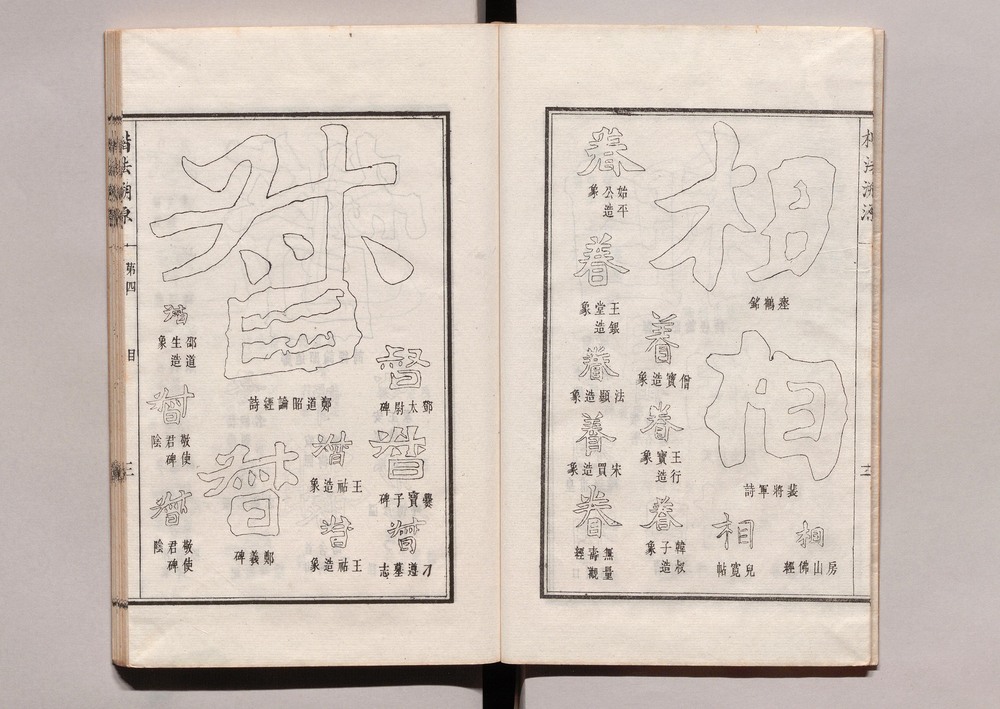 楷法溯源
相
瘞鶴銘
相
裴將軍詩
相
房山佛經
相
兒寬帖
眷
僧寶造象
眷
王行寶造象
眷
韓叔子造象
眷
始平公造象
眷
王銀堂造象
眷
法顯造象
眷
宋買造象
眷
無量壽觀經
督
鄧太尉碑
督
爨寶子碑
督
刁遵墓志
督
王祜造象
督
王祜造象
督
鄭道昭論經詩
督
鄭羲碑
邵道生造象
督
敬使君碑陰
督
敬使君碑陰
楷法溯源
第四
目
三